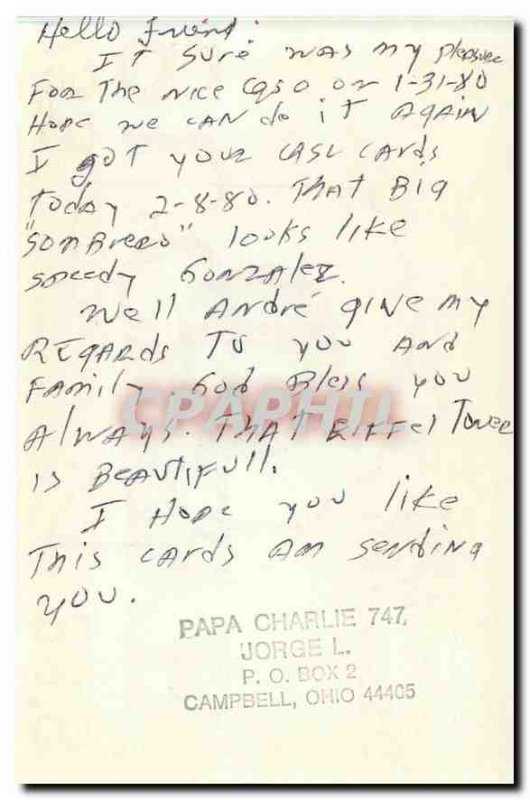 Hello Friend:
IT Sure was my pleasure
FOR The nice QSO on 1-31-80
Hope we CAN do iT AgAiN
I goT your QSL CARds
Today 2-8-80. THAT Big
"SOMBRERO" looks like
Speedy GONZAlez.
Well André give my
REgARds To you And
FAmily God Bless you
AlwAys. THAT EiFFel Tower
is BeAuTiFull.
I Hope you like
This cARds Am sending
you.
CPAPHIL
PAPA CHARLIE 747,
JORGE L.
P. O. BOX 2
CAMPBELL, OHIO 44405